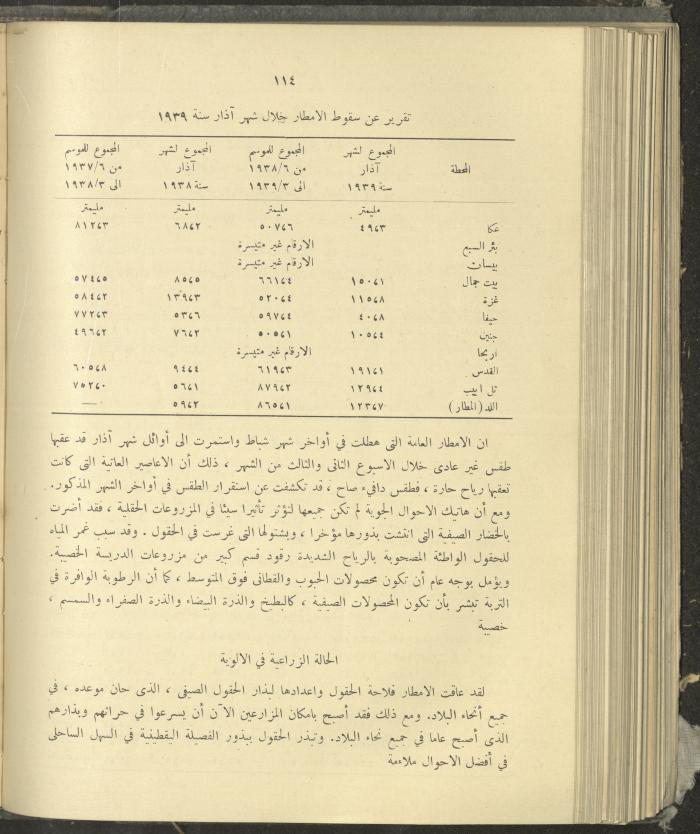 ١١٤
تقرير عن سقوط الامطار خلال شهر آذار سنة ١٩٣٩
المحطة المجموع لشهر آذار سنة ١٩٣٩ المجموع للموسم من ١٩٣٨/٦ الى ١٩٣٩/٣ المجموع لشهر آذار سنة ١٩٣٨ المجموع للموسم من ١٩٣٧/٦ الى ١٩٣٨/٣
مليمتر مليمتر مليمتر مليمتر
عكا ٤٩٫٣ ٥٠٧٫٦ ٦٨٫٢ ٨١٢٫٣
بئر السبع الارقام غير متيسرة
بيسان الارقام غير متيسرة
بيت جمال ١٥٠٫١ ٦٦١٫٤ ٨٥٫٥ ٥٧٤٫٥
غزة ١١٥٫٨ ٥٢٠٫٤ ١٣٩٫٣ ٥٨٤٫٢
حيفا ٤٠٫٨ ٥٩٧٫٤ ٥٣٫٦ ٧٧٢٫٣
جنين ١٠٥٫٤ ٥٠٥٫١ ٧٦٫٢ ٤٩٦٫٢
اريحا الارقام غير متيسرة
القدس ١٩١٫١ ٦١٩٫٣ ٩٤٫٤ ٦٠٥٫٨
تل ابيب ١٢٩٫٤ ٨٧٩٫٢ ٥٦٫١ ٧٥٢٫٠
اللد (المطار) ١٢٣٫٧ ٨٦٥٫١ ٥٩٫٢ —
ان الامطار العامة التى هطلت في أواخر شهر شباط واستمرت الى أوائل شهر آذار قد عقبها
طقس غير عادى خلال الاسبوع الثانى والثالث من الشهر ، ذلك أن الاعاصير العاتية التى كانت
تعقبها رياح حارة ، فطقس دافىء صاح ، قد تكشفت عن استقرار الطقس في أواخر الشهر المذكور.
ومع أن هاتيك الاحوال الجوية لم تكن جميعها لتؤثر تأثيرا سيئا في المزروعات الحقلية ، فقد أضرت
بالخضار الصيفية التى انتشت بذورها مؤخرا ، وبشتولها التى غرست في الحقول . وقد سبب غمر المياه
للحقول الواطئة المصحوبة بالرياح الشديدة رقود قسم كبير من مزروعات الدريسة الخصبة.
ويؤمل بوجه عام أن تكون محصولات الحبوب والقطانى فوق المتوسط ، كما أن الرطوبة الوافرة في
التربة تبشر بأن تكون المحصولات الصيفية ، كالبطيخ والذرة البيضاء والذرة الصفراء والسمسم ،
خصيبة
الحالة الزراعية في الالوية
لقد عاقت الامطار فلاحة الحقول واعدادها لبذار الحقول الصيفى ، الذى حان موعده ، في
جميع أنحاء البلاد. ومع ذلك فقد أصبح بامكان المزارعين الآن أن يسرعوا في حراثهم وبذارهم
الذى أصبح عاما في جميع نحاء البلاد. وتبذر الحقول ببذور الفصيلة اليقطينية في السهل الساحلى
في أفضل الاحوال ملاءمة